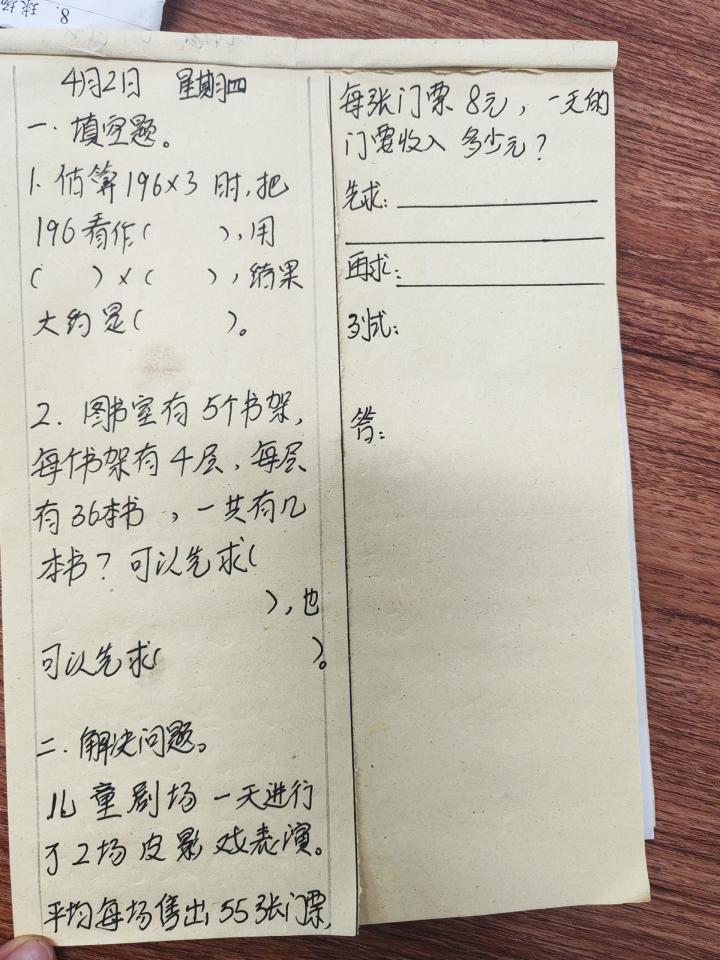 8.
球场
4月2日 星期四
一.填空题。
1.估算196×3时,把
196看作( ),用
( )×( ),结果
大约是( )。
2.图书室有5个书架,
每个书架有4层,每层
有36本书,一共有几
本书?可以先求(
),也
可以先求( )。
二.解决问题。
儿童剧场一天进行
了2场皮影戏表演。
平均每场售出155张门票,
每张门票8元,一天的
门票收入多少元?
先求:
再求:
列式:
答: